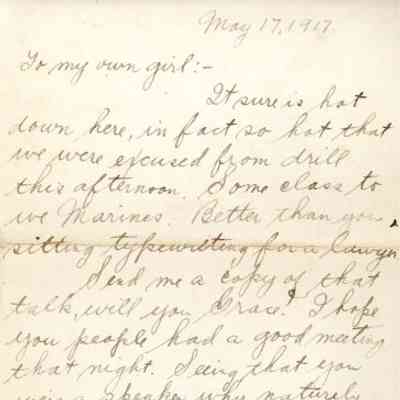 May 17, 1917.
To my own girl:-
It sure is hot
down here, in fact so hot that
we were excused from drill
this afternoon. Some class to
we Marines. Better than you
sitting typewriting for a lawyer
Send me a copy of that
talk, will you Grace? I hope
you people had a good meeting
that night. Seeing that you
were a speaker why naturely